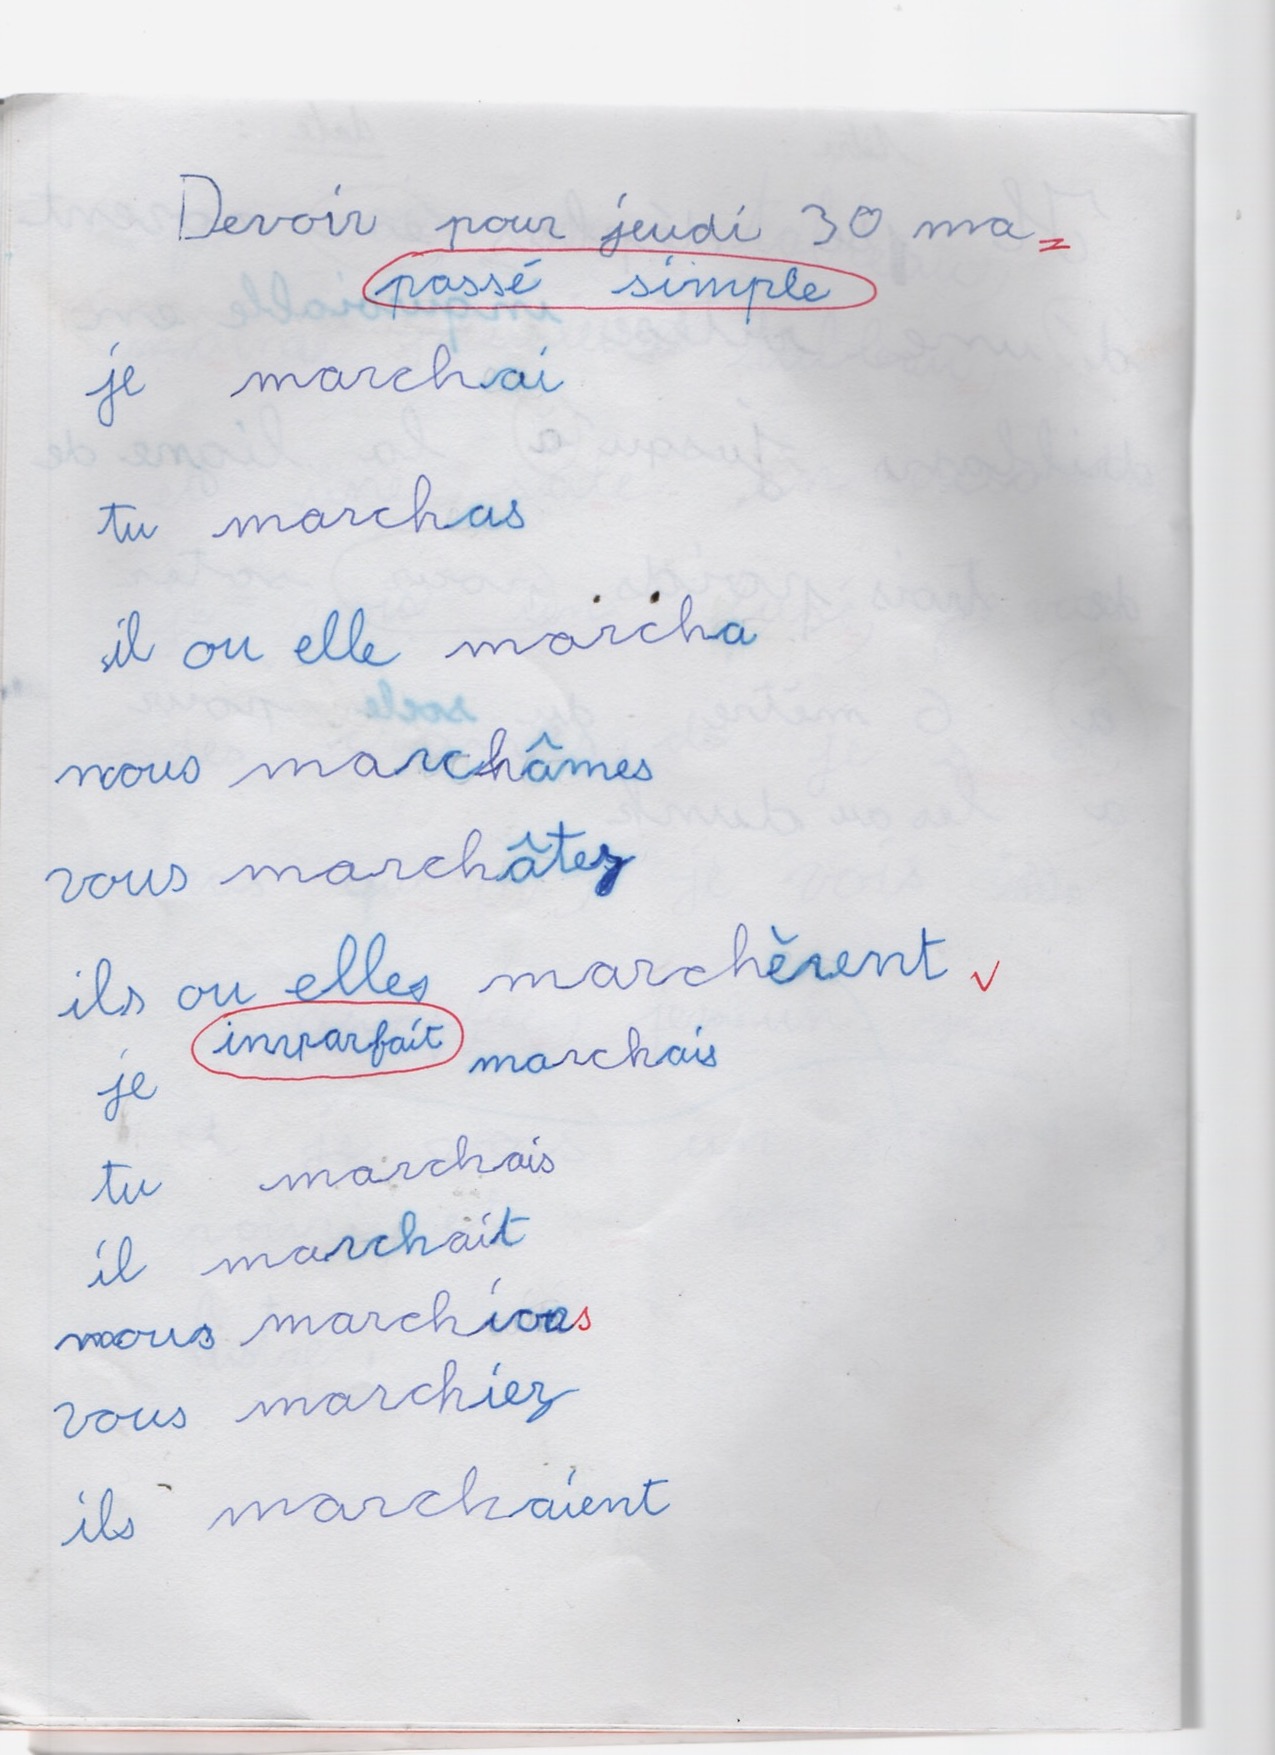 Devoir pour jeudi 30 ma=
passé simple
je marchai
tu marchas
il ou elle marcha
nous marchâmes
vous marchâtez
ils ou elles marchèrent
imparfait
je marchais
tu marchais
il marchait
nous marchions
vous marchiez
ils marchaient